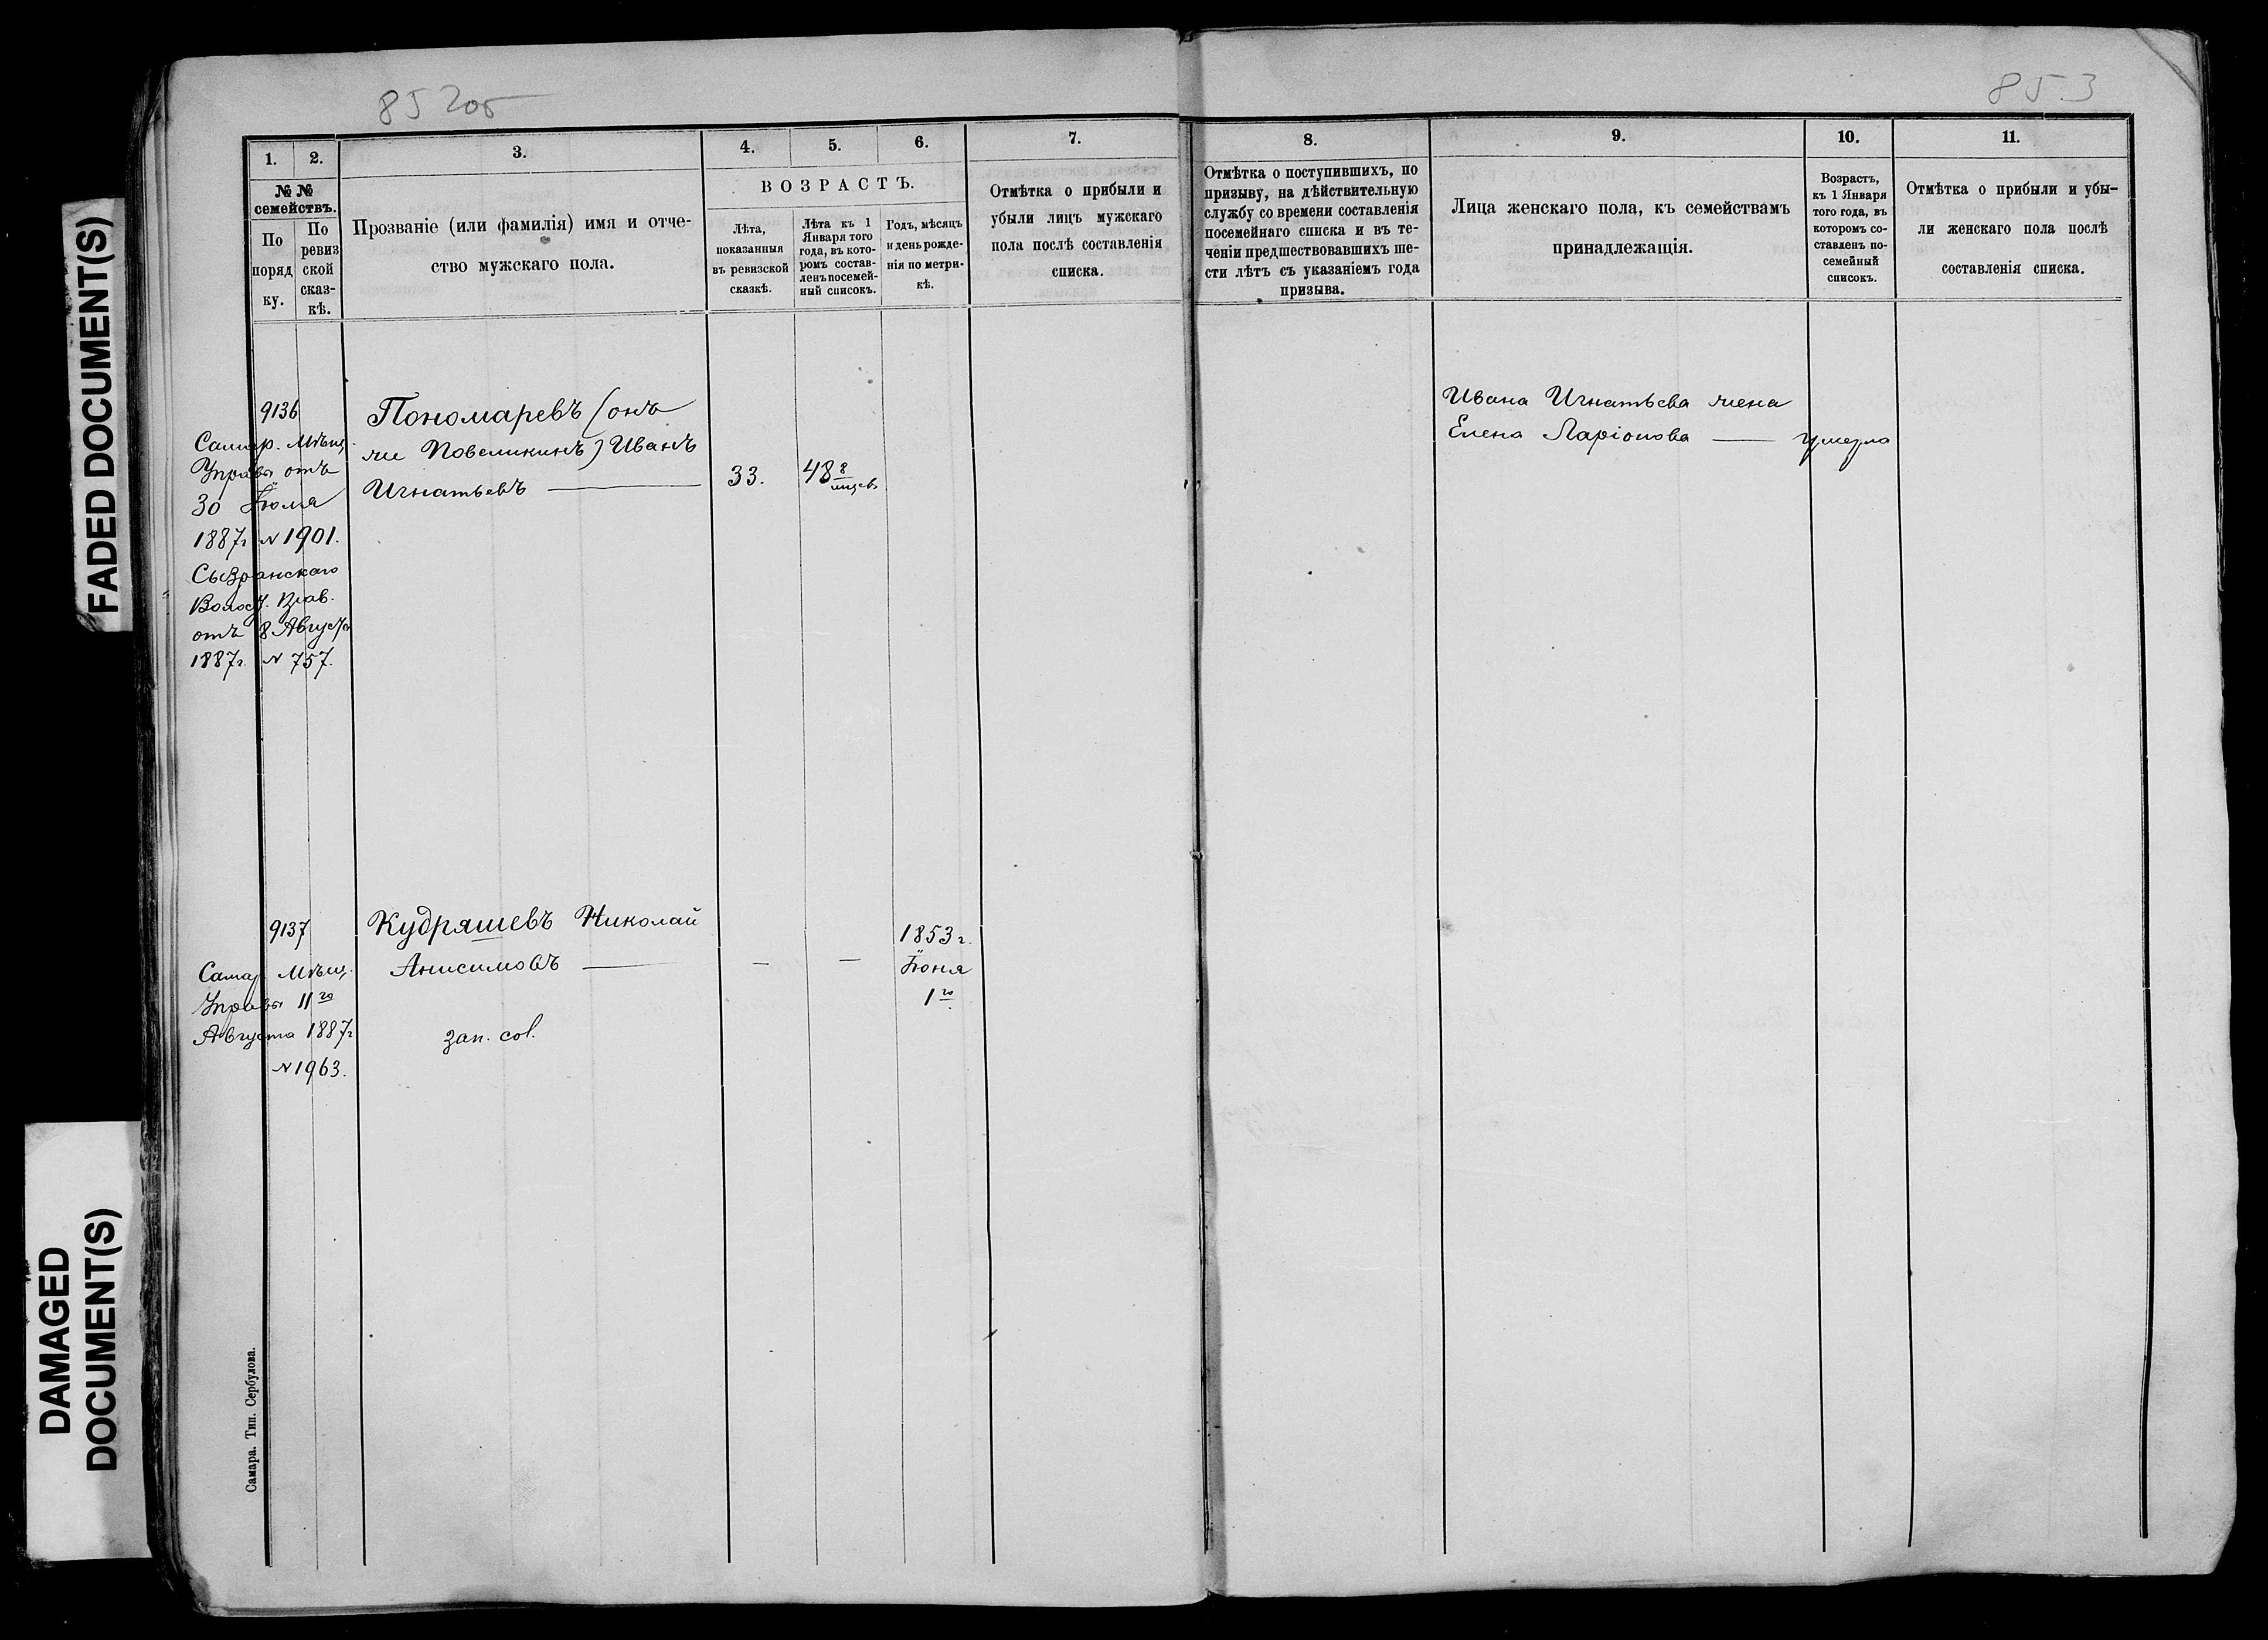 FADED DOCUMENT(S)
DAMAGED
DOCUMENT(S)
852об
853
1.
2.
3.
4.
5.
6.
7.
№ №
семействъ.
По
поряд
ку.
По
ревиз
ской
сказ-
кѣ.
Прозваніе (или фамилія) имя и отче-
ство мужскаго пола.
ВОЗРАСТЪ.
Лѣта,
показанныя
въ ревизской
сказкѣ.
Лѣта къ 1
Января того
года, въ кото-
ромъ состав-
ленъ посемей-
ный списокъ.
Годъ, мѣсяцъ
и день рожде-
нія по метри-
кѣ.
Отмѣтка о прибыли и
убыли лицъ мужскаго
пола послѣ составленія
списка.
8.
9.
10.
11.
Отмѣтка о поступившихъ, по
призыву, на дѣйствительную
службу со времени составленія
посемейнаго списка и въ те-
ченіи предшествовавшихъ ше-
сти лѣтъ съ указаніемъ года
призыва.
Лица женскаго пола, къ семействамъ
принадлежащія.
Возрастъ,
къ 1 Января
того года, въ
которомъ со-
ставленъ по-
семейный
списокъ.
Отмѣтка о прибыли и убы-
ли женскаго пола послѣ
составленія списка.
9136
Самар. Мѣщ.
Управы отъ
30 Іюля
1887г N 1901.
Сызранскаго
Волост. Прав.
отъ 8 Августа
1887г. N 757.
Пономаревъ (онъ
же Повеликинъ) Иванъ
Игнатьевъ —
33.
48 8
мцев
Ивана Игнатьева жена
Елена Ларіонова — умерла
9137
Самар. Мѣщ.
Управы 11го
Августа 1887г
N 1963.
Кудряшевъ Николай
Анисимовъ —
зап. сol.
—
—
1853г.
Іюня
1го
Самара. Тип. Сербулова.